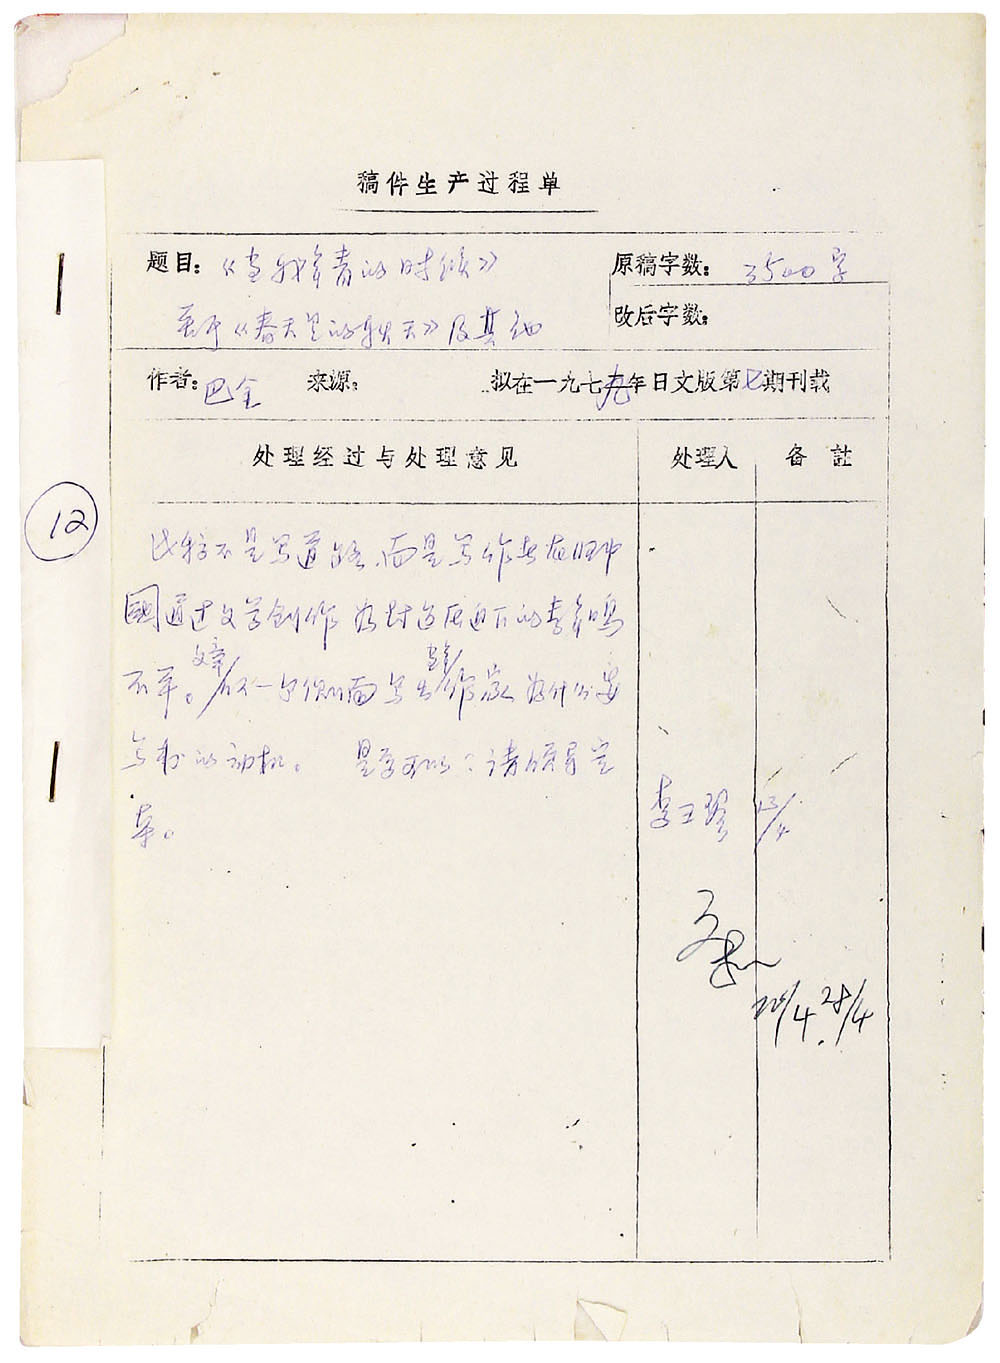 稿件生产过程单
题目：《当我年青的时候》
原稿字数：3500字
关于《春天里的秋天》及其他
改后字数：
作者：巴金 来源： 拟在一九七九年日文版第七期刊载
处理经过与处理意见 处理人 备註
12
不是写道路，而是写作者在旧中
国通过文学创作为封建压迫下的青年鸣
文章 当年
不平。从一个侧面写出作家为什么要
写书的动机。是否可以？请领导定
夺。
李 翠
28/4